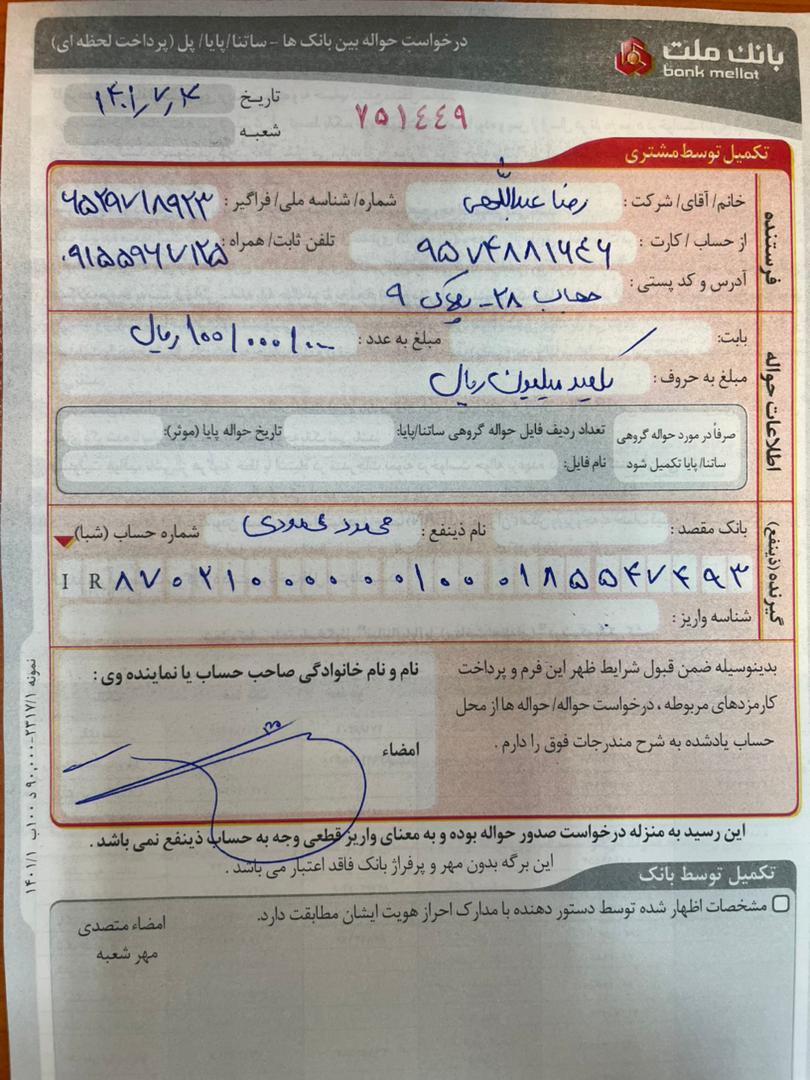 بانک ملت
bank mellat
درخواست حواله بین بانک ها - ساتنا/پایا/ پل (پرداخت لحظه ای)
تاریخ ۱۴۰۱٫۷٫۴
۷۵۱۴۴۹
شعبه
تکمیل توسط مشتری
فرستنده
خانم/ آقای/ شرکت: رضا عبداللهی شماره/ شناسه ملی/ فراگیر: ۶۵۲۹۷۱۸۹۲۳
از حساب/ کارت: ۹۵۷۴۸۸۱۶۴۶ تلفن ثابت/ همراه: ۰۹۱۵۵۹۶۷۱۲۵
آدرس و کد پستی: ۲۸- پلاک ۹
اطلاعات حواله
بابت: مبلغ به عدد: ۱۰۰/۰۰۰/۰۰۰ ریال
مبلغ به حروف: یکصد میلیون ریال
صرفاً در مورد حواله گروهی تعداد ردیف فایل حواله گروهی ساتنا/پایا: تاریخ حواله پایا (موثر):
ساتنا/ پایا تکمیل شود نام فایل:
گیرنده (ذینفع)
بانک مقصد: نام ذینفع: محمود محمودی شماره حساب (شبا)
IR ۸۷۰۲۱۰۰۰۰۰۰۰۱۰۰۰۱۸۵۵۴۷۴۹۳
شناسه واریز:
بدینوسیله ضمن قبول شرایط ظهر این فرم و پرداخت
کارمزدهای مربوطه، درخواست حواله/ حواله ها از محل
حساب یادشده به شرح مندرجات فوق را دارم.
نام و نام خانوادگی صاحب حساب یا نماینده وی:
امضاء
این رسید به منزله درخواست صدور حواله بوده و به معنای واریز قطعی وجه به حساب ذینفع نمی باشد.
این برگه بدون مهر و پرفراژ بانک فاقد اعتبار می باشد.
تکمیل توسط بانک
مشخصات اظهار شده توسط دستور دهنده با مدارک احراز هویت ایشان مطابقت دارد.
امضاء متصدی
مهر شعبه
نمونه ۲۳۱۷/۱-۹۰,۰۰۰ د ۱۰۰ب ۱۴۰۱/۱